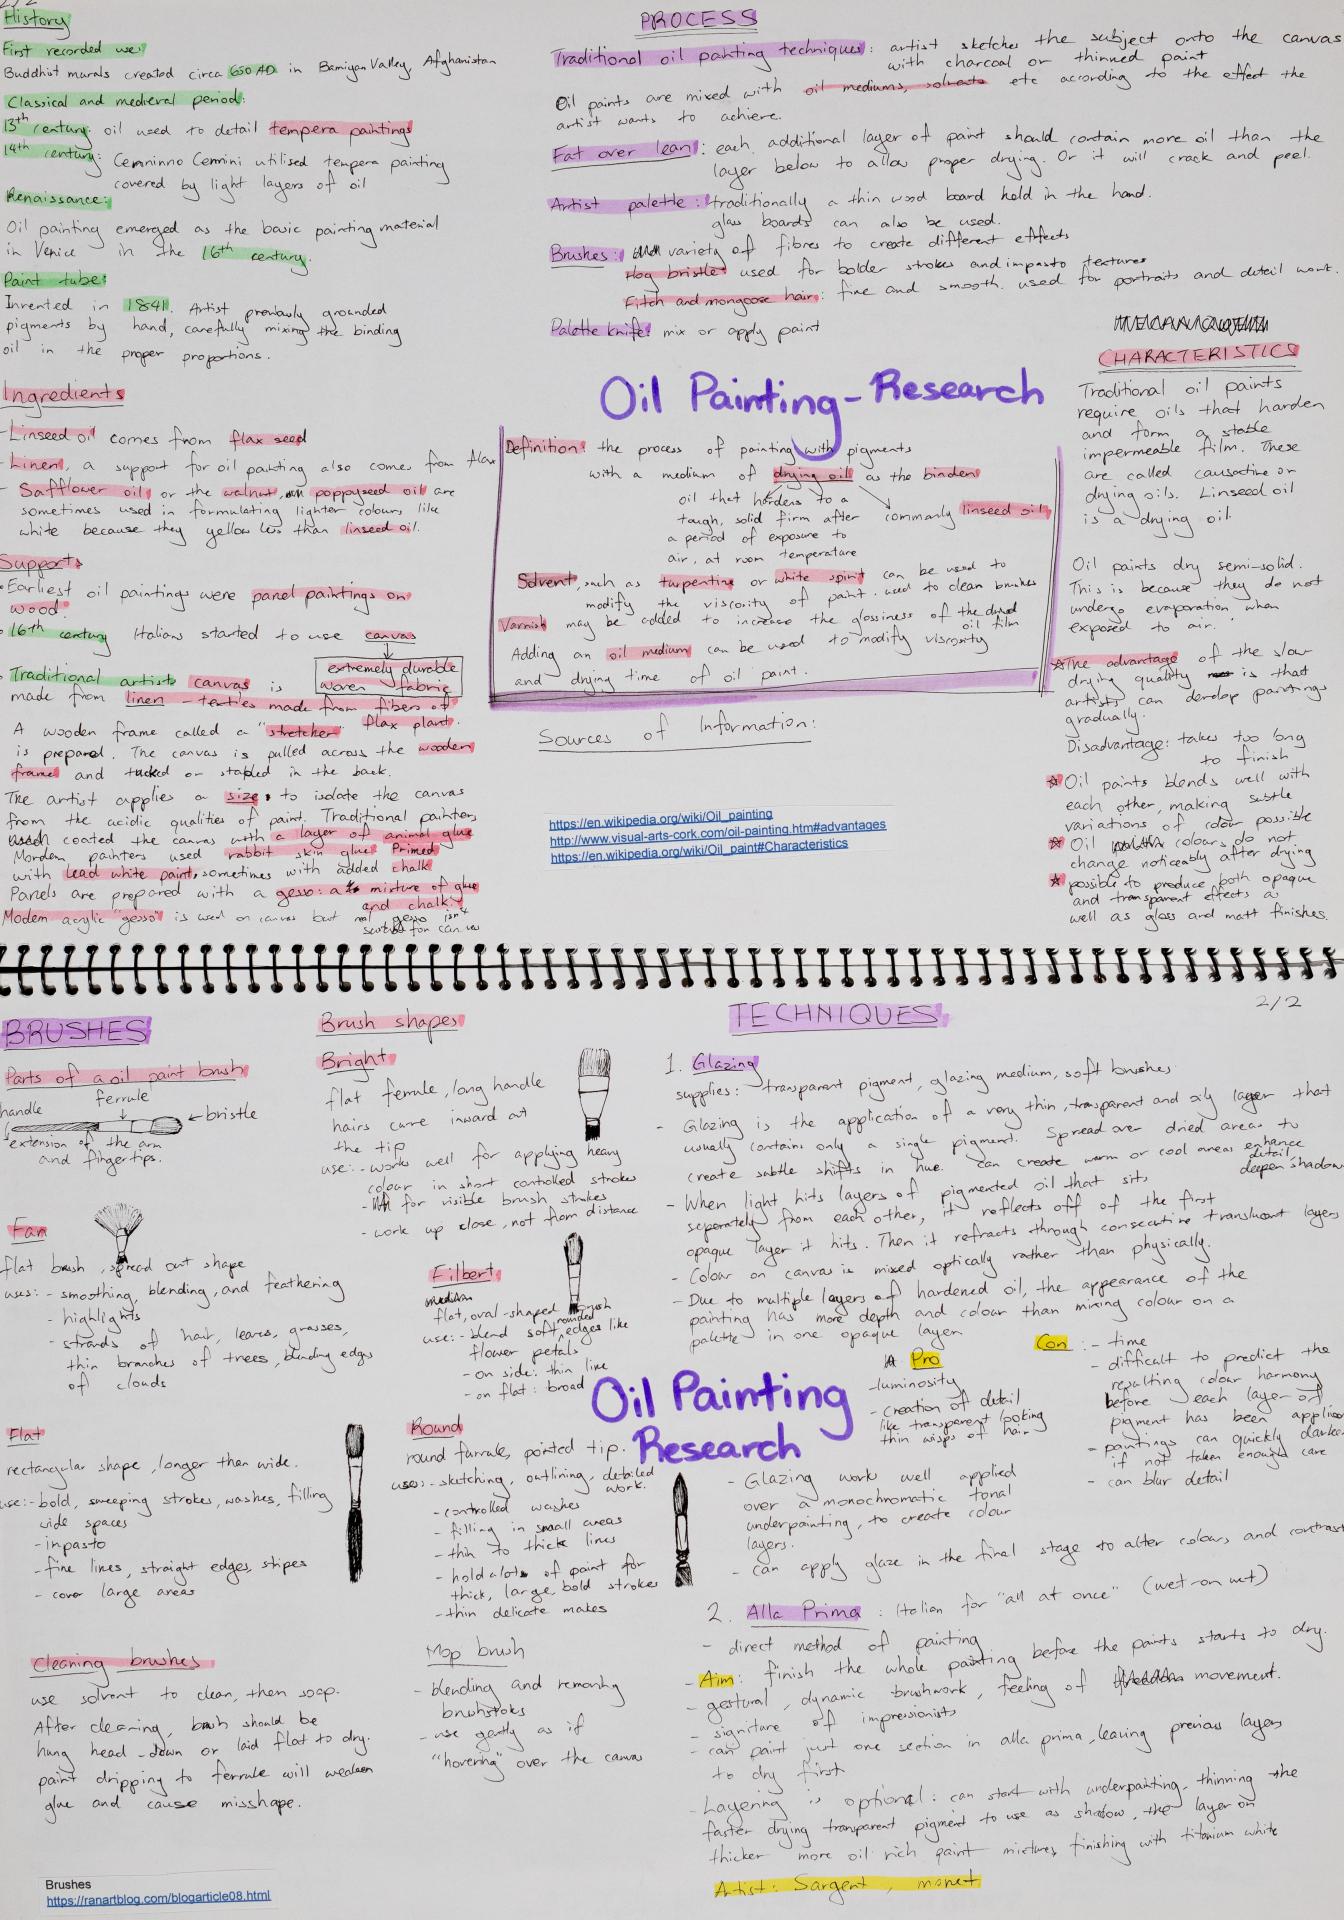 2/2
History
First recorded use:
Buddhist murals created circa 650 AD in Bamiyan Valley, Afghanistan
Classical and medieval period:
13th century: oil used to detail tempera paintings
14th century: Cennninno Cennini utilised tempera painting
covered by light layers of oil
Renaissance:
Oil painting emerged as the basic painting material
in Venice in the 16th century.
Paint tube:
Invented in 1841. Artist previously grounded
pigments by hand, carefully mixing the binding
oil in the proper proportions.
Ingredients
- Linseed oil comes from flax seed
- Linen, a support for oil painting also comes from flax
- Safflower oil or the walnut, poppyseed oil are
sometimes used in formulating lighter colours, like
white because they yellow less than linseed oil.
Supports
• Earliest oil paintings were panel paintings on
wood.
• 16th century Italians started to use canvas
extremely durable
woven fabric
• Traditional artists canvas is
made from linen - textiles made from fibers of
flax plant.
A wooden frame called a "stretcher"
is prepared. The canvas is pulled across the wooden
frame and tucked or stapled in the back.
The artist applies a size, to isolate the canvas
from the acidic qualities of paint. Traditional painters
coated the canvas with a layer of animal glue
Mordern painters used rabbit skin glue. Primed
with lead white paint, sometimes with added chalk
Panels are prepared with a gesso: a mixture of glue
and chalk.
Modern acrylic "gesso" is used on canvas but real gesso isn't
suited for canvas
PROCESS
Traditional oil painting techniques: artist sketches the subject onto the canvas
with charcoal or thinned paint
Oil paints are mixed with oil mediums, solvents etc according to the effect the
artist wants to achieve.
Fat over lean: each additional layer of paint should contain more oil than the
layer below to allow proper drying. Or it will crack and peel.
Artist palette: traditionally a thin wood board held in the hand.
glass boards can also be used.
Brushes: variety of fibres to create different effects
Hog bristle used for bolder strokes and impasto textures
Fitch and mongoose hair: fine and smooth. used for portraits and detail work.
Palette knife: mix or apply paint
Oil Painting - Research
Definition: the process of painting with pigments
with a medium of drying oil as the binder
oil that hardens to a
tough, solid firm after
a period of exposure to
air, at room temperature
commonly linseed oil
Solvent, such as turpentine or white spirit can be used to
modify the viscosity of paint. used to clean brushes
Varnish may be added to increase the glossiness of the dried
oil film
Adding an oil medium can be used to modify viscosity
and drying time of oil paint.
Sources of Information:
https://en.wikipedia.org/wiki/Oil_painting
http://www.visual-arts-cork.com/oil-painting.htm#advantages
https://en.wikipedia.org/wiki/Oil_paint#Characteristics
CHARACTERISTICS
Traditional oil paints
require oils that harden
and form a stable
impermeable film. These
are called causative or
drying oils. Linseed oil
is a drying oil.
Oil paints dry semi-solid.
This is because they do not
undergo evaporation when
exposed to air.
The advantage of the slow-
drying quality is that
artists can develop paintings
gradually.
Disadvantage: takes too long
to finish
Oil paints blends well with
each other, making subtle
variations of colour possible
Oil colours do not
change noticeably after drying
possible to produce both opaque
and transparent effects a
well as gloss and matt finishes.
2/2
BRUSHES
Parts of a oil paint brush
handle
ferrule
bristle
extension of the arm
and fingertips.
Fan
flat brush, spread out shape
uses: - smoothing, blending, and feathering
- highlights
- strands of hair, leaves, grasses,
thin branches of trees, blending edges
of clouds
Flat
rectangular shape, longer than wide.
use: - bold, sweeping strokes, washes, filling
wide spaces
- inpasto
- fine lines, straight edges, stipes
- cover large areas
Cleaning brushes
use solvent to clean, then soap.
After cleaning, brush should be
hung head-down or laid flat to dry.
paint dripping to ferrule will weaken
glue and cause misshape.
Brushes
https://ranartblog.com/blogarticle08.html
Brush shapes
Bright
flat ferrule, long handle
hairs curve inward at
the tip
use: - works well for applying heavy
colour in short controlled strokes
- for visible brush strokes
- work up close, not from distance
Filbert
flat, oval-shaped brush
use: - blend soft rounded edges like
flower petals
- on side: thin line
- on flat: broad
Round
round furrule, pointed tip.
uses: - sketching, outlining, detailed
work.
- controlled washes
- filling in small areas
- thin to thick lines
- hold alots of paint for
thick, large, bold strokes
- thin delicate makes
Mop brush
- blending and removing
brushstokes
- use gently as if
"hovering" over the canvas
Oil Painting
Research
TECHNIQUES
1. Glazing
supplies: transparent pigment, glazing medium, soft brushes
- Glazing is the application of a very thin, transparent and oily layer that
usually contains only a single pigment. Spread over dried areas to
create subtle shifts in hue. can create warm or cool areas enhance
detail,
deepen shadow
- When light hits layers of pigmented oil that sits
seperately from each other, it reflects off of the first
opaque layer it hits. Then it refracts through consecutive translucent layers
- Colour on canvas is mixed optically rather than physically.
- Due to multiple layers of hardened oil, the appearance of the
painting has more depth and colour than mixing colour on a
palette in one opaque layer
Pro
- luminosity
- creation of detail
like transparent looking
thin wisps of hair
Con: - time
- difficult to predict the
resulting colour harmony
before each layer of
pigment has been applied
- paintings can quickly darken
if not taken enough care
- can blur detail
- Glazing work well applied
over a monochromatic tonal
underpainting, to create colour
layers.
- can apply glaze in the final stage to alter colour, and contrast
2. Alla Prima: Italian for "all at once" (wet-on wet)
- direct method of painting
- Aim: finish the whole painting before the paints starts to dry.
- gestural, dynamic brushwork, feeling of movement.
- signiture of impressionists
- can paint just one section in alla prima, leaving previous layers
to dry first
- Layering is optional: can start with underpainting, thinning the
faster drying transparent pigment to use as shadow, the layer on
thicker more oil rich paint mixtures, finishing with titanium white
Artist: Sargent, monet